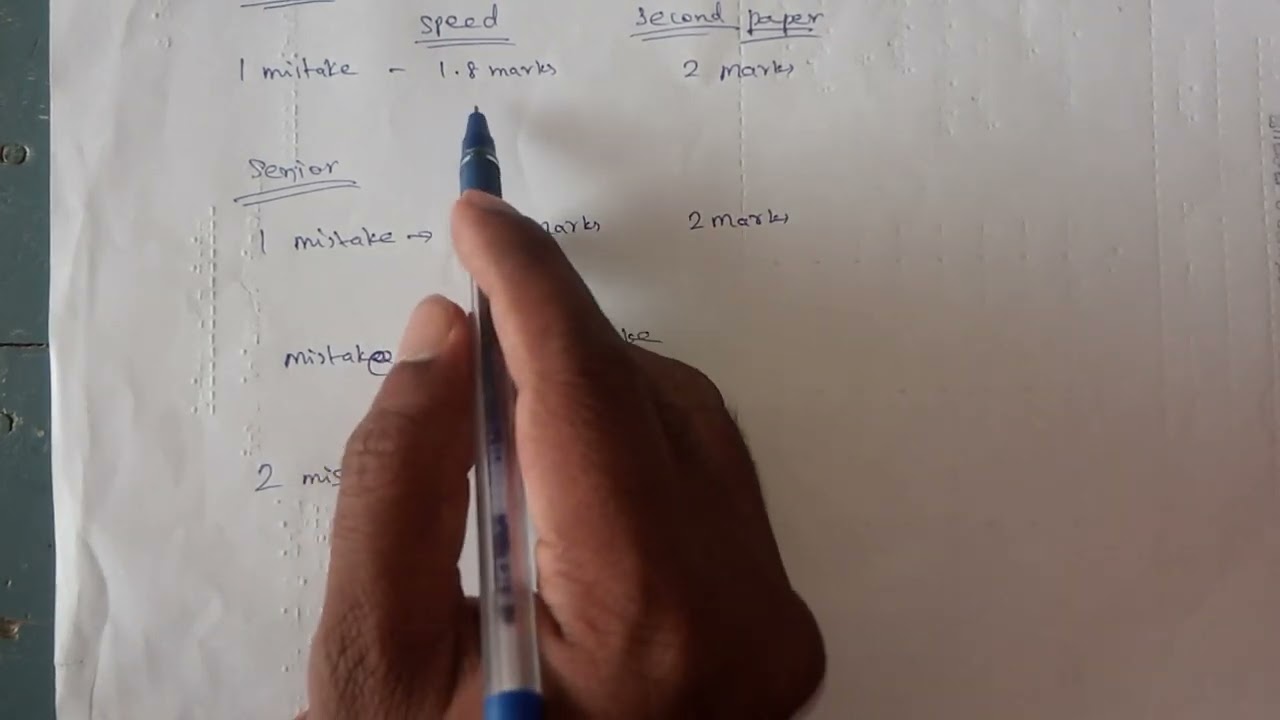 speed second paper
1 mistake - 1.8 marks 2 marks
Senior
1 mistake → marks 2 marks
mistake
2